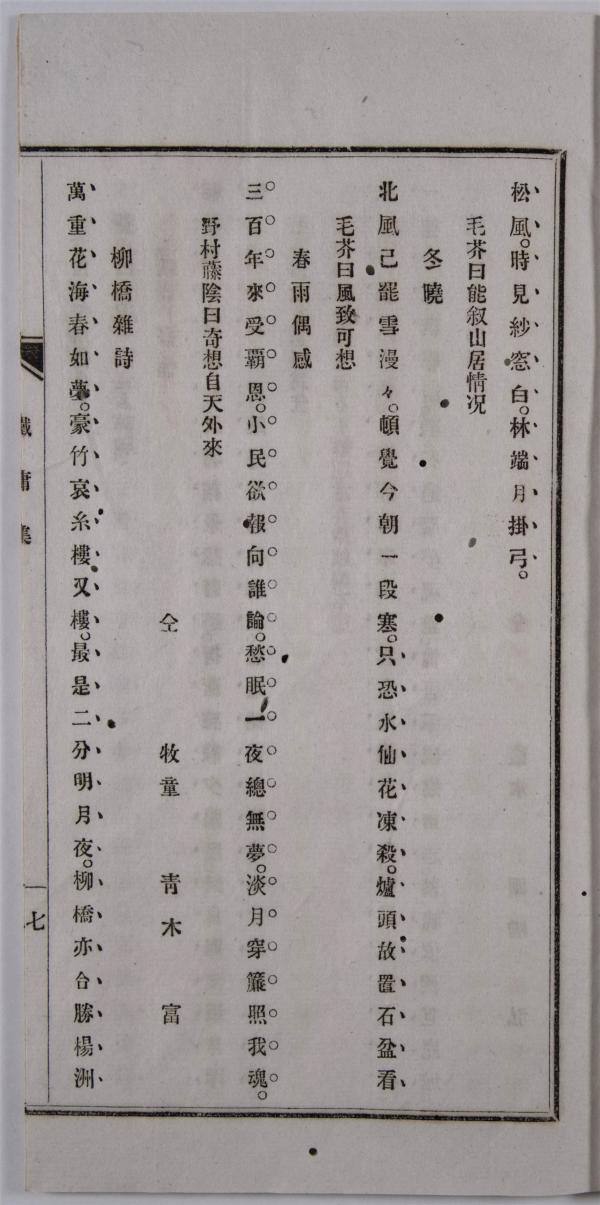 松風。時見紗窓白。林端月掛弓。
毛芥曰能叙山居情况
冬曉
北風已罷雪漫々。頓覺今朝一段寒。只恐水仙花凍殺。爐頭故置石盆看
毛芥曰風致可想
春雨偶感
三百年來受覇恩。小民欲報向誰論。愁眠一夜總無夢。淡月穿簾照我魂。
野村藤陰曰奇想自天外來
仝 牧童 青木 富
柳橋雜詩
萬重花海春如夢。豪竹哀糸樓又樓。最是二分明月夜。柳橋亦合勝楊洲
集
七